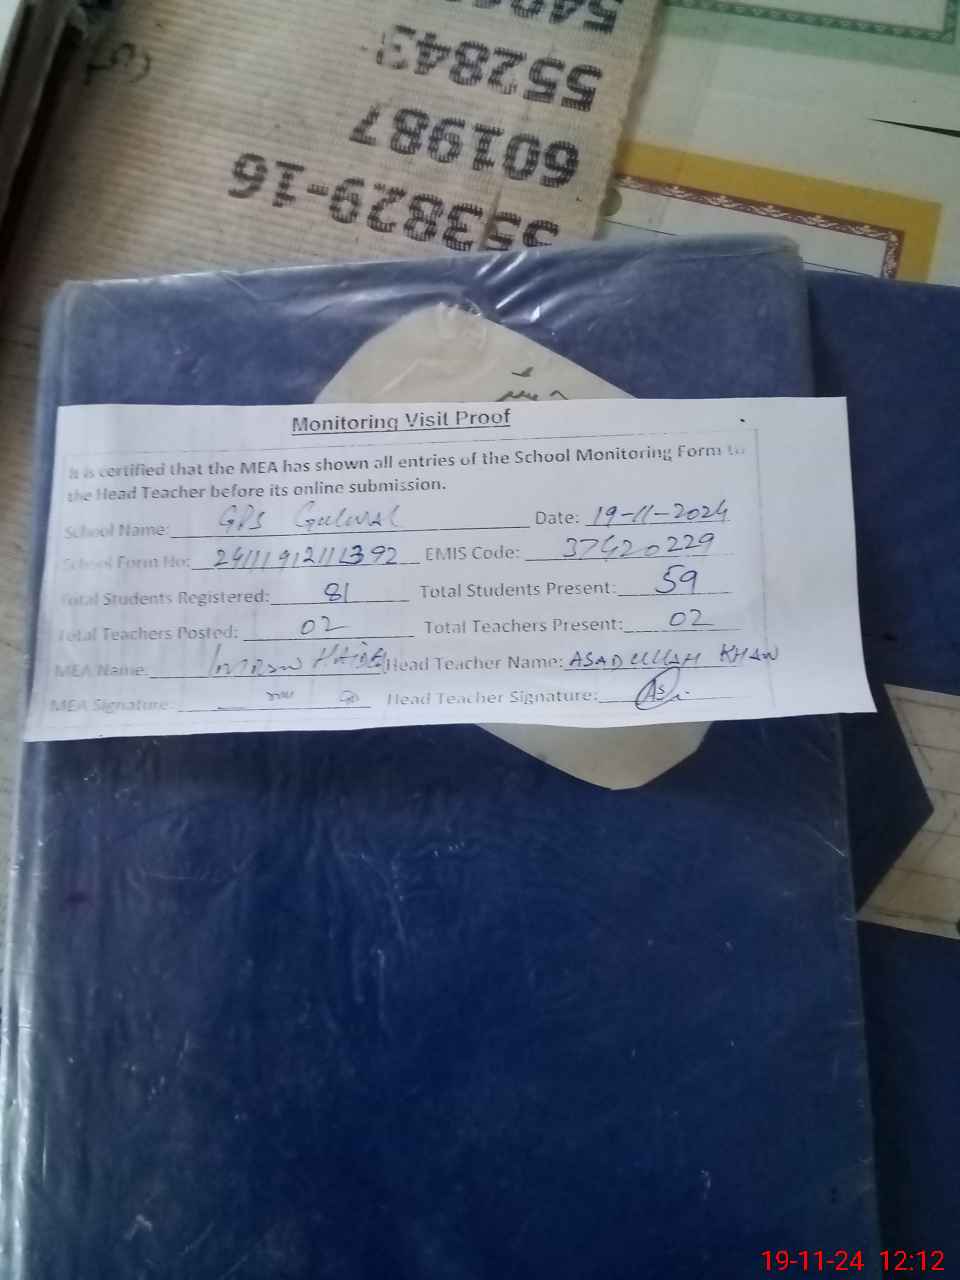 552843
601987
353829-16
Monitoring Visit Proof
It is certified that the MEA has shown all entries of the School Monitoring Form to
the Head Teacher before its online submission.
School Name: GPS Date: 19-11-2024
School Form No: EMIS Code: 37420229
Total Students Registered: 81 Total Students Present: 59
Total Teachers Posted: 02 Total Teachers Present: 02
MEA Name: Imran Haider Head Teacher Name: ASAD ULLAH KHAN
MEA Signature: Head Teacher Signature:
19-11-24 12:12